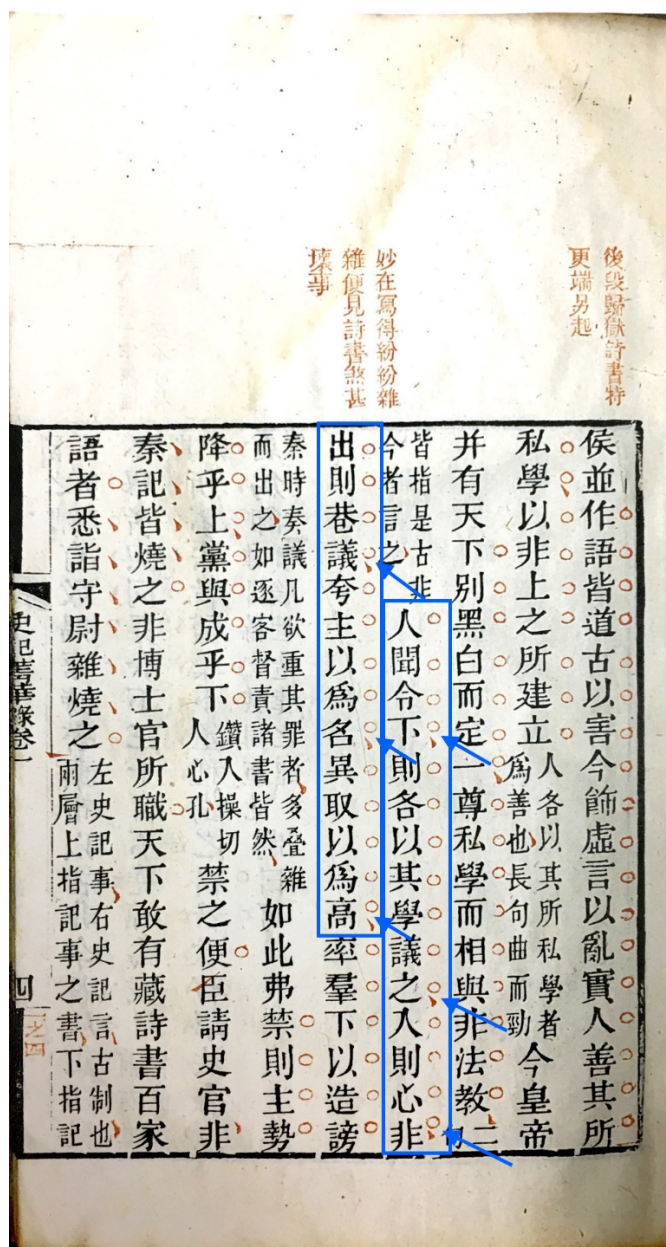 後段歸獄詩書特
更端另起
妙在寫得紛紛雜
雜便見詩書煞甚
壞事
侯並作語皆道古以害今飾虛言以亂實人善其所
私學以非上之所建立
人各以其所私學者
爲善也長句曲而勁
今皇帝
并有天下別黑白而定一尊私學而相與非法教
二
皆指是古非
今者言之
人聞令下則各以其學議之入則心非
出則巷議夸主以爲名異取以爲高率羣下以造謗
秦時奏議凡欲重其罪者多叠雜
而出之如逐客督責諸書皆然
如此弗禁則主勢
降乎上黨與成乎下
鑽入操切
人心孔
禁之便臣請史官非
秦記皆燒之非博士官所職天下敢有藏詩書百家
語者悉詣守尉雜燒之
左史記事右史記言古制也
兩層上指記事之書下指記
史記菁華錄卷一
四